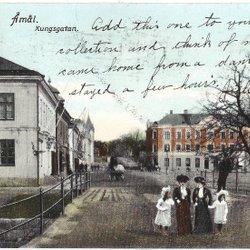 Åmål.
Kungsgatan.
Add this one to your
collection and think of
came home from a dan
stayed a few hours